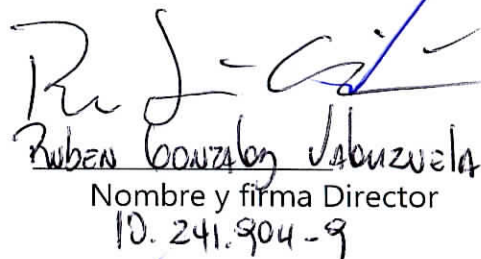 Ruben Gonzalez Valenzuela
Nombre y firma Director
10.241.904-9